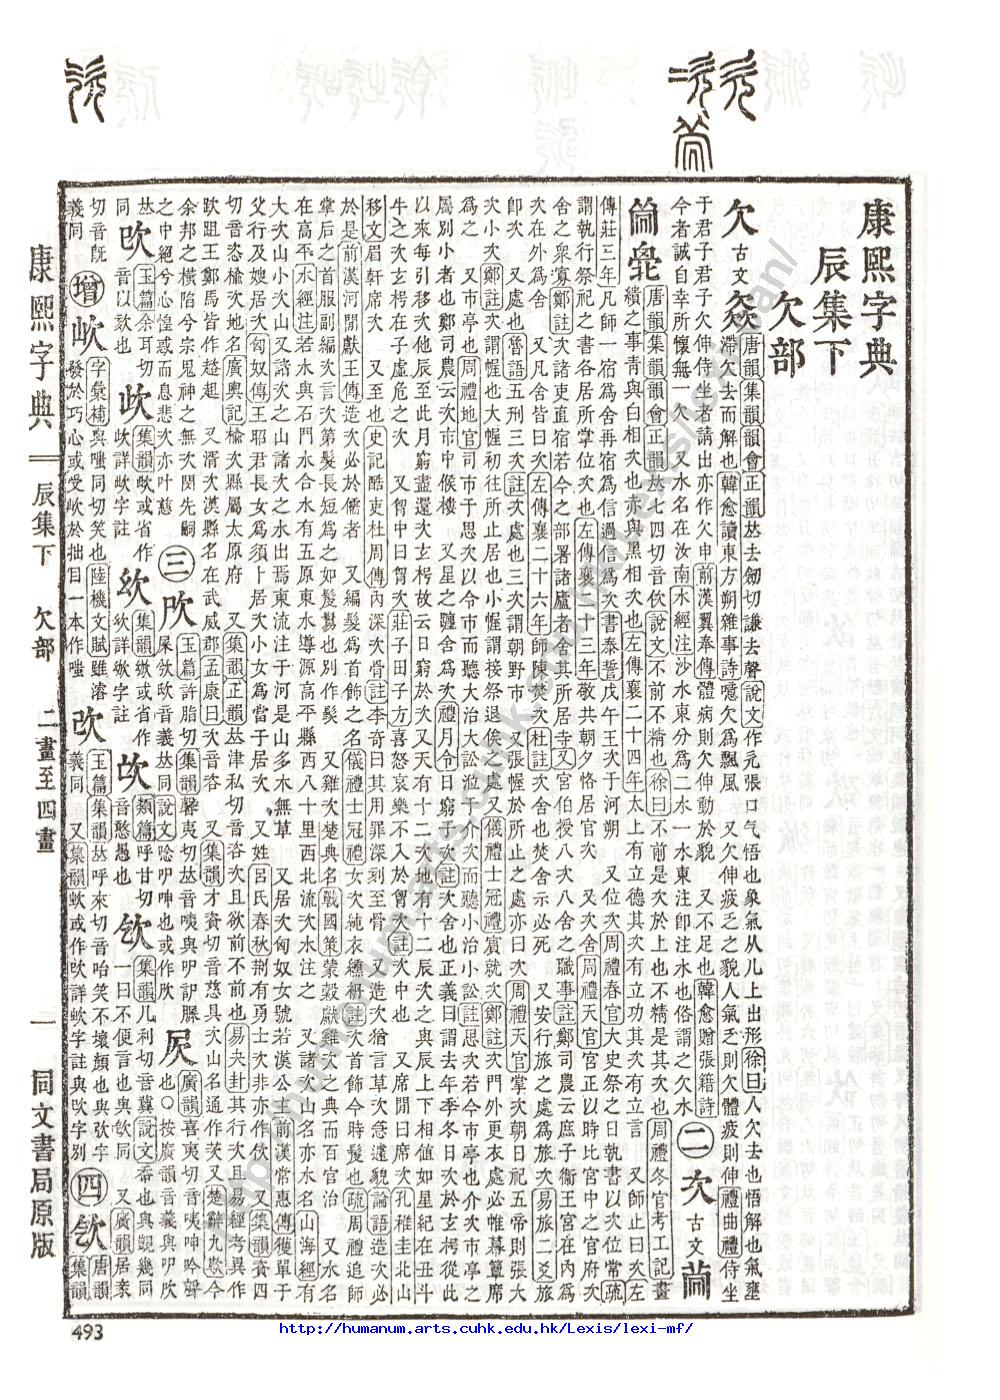 康熙字典
辰集下
欠部
欠 古文 㱃 唐韻集韻韻會正韻𠀤去劒切謙去聲說文作𣣓張口气悟也象氣从儿上出形徐曰人欠去也悟解也氣壅
滯欠去而解也韓愈讀東方朔雜事詩噫欠爲飄風 又欠伸疲乏之貌人氣乏則欠體疲則伸禮曲禮侍坐
于君子君子欠伸侍坐者請出亦作欠申前漢翼奉傳體病則欠伸動於貌 又不足也韓愈贈張籍詩
今者誠自幸所懷無一欠 又水名在汝南水經注沙水東分爲二水一水東注卽注水也俗謂之欠水 二 次 古文
唐韻集韻韻會正韻𠀤七四切音佽說文不前不精也徐曰不前是次於上也不精是其次也周禮冬官考工記畫
繢之事靑與白相次也赤與黑相次也左傳襄二十四年太上有立德其次有立功其次有立言 又師止曰次左
傳莊三年凡師一宿爲舍再宿爲信過信爲次書泰誓戊午王次于河朔 又位次周禮春官大史祭之日執書以次位常疏
謂執行祭祀之書各居所掌位次也左傳襄二十三年敬共朝夕恪居官次 又次舍周禮天官宮正以時比宮中之官府次
舍之衆寡鄭註次諸吏直宿若今之部署諸廬者舍其所居寺又宮伯授八次八舍之職事註鄭司農云庶子衞王宮在內爲
次在外爲舍 又凡舍皆曰次左傳襄二十六年師陳焚次杜註次舍也焚舍示必死 又安行旅之處爲旅次易旅二爻旅
卽次 又處也晉語五刑三次註次處也三次謂朝野市 又張幄於所止之處亦曰次周禮天官掌次朝日祀五帝則張大
次小次鄭註次謂幄也大幄初往所止居也小幄謂接祭退俟之處又儀禮士冠禮賔就次鄭註次門外更衣處必帷幕簟席
爲之 又市亭也周禮地官司市于思次以令市而聽大治大訟涖于介次而聽小治小訟註思次若今市亭也介次市亭之
屬別小者也鄭司農云次市中候樓 又星之躔舍爲次禮月令日窮于次註次舍也正義曰謂去年季冬日次於玄枵從此
以來每引移次他辰至此月窮盡還次玄枵故云日窮於次又天有十二次地有十二辰次之與辰上下相値如星紀在丑斗
牛之次玄枵在子虛危之次 又胷中曰胷次莊子田子方喜怒哀樂不入於胷次註次中也 又席閒曰席次孔稚圭北山
移文眉軒席次 又至也史記酷吏杜周傳內深次骨註李奇曰其用罪深刻至骨 又造次猶言草次急遽貌論語造次必
於是前漢河閒獻王傳造次必於儒者 又編髮爲首飾之名儀禮士冠禮女次純衣纁袡註次首飾今時髲也疏周禮追師
掌后之首服副編次言次第髮長短爲之如髲也別作髮 又雞次楚典名戰國策蒙穀獻雞次之典而百官治 又水名
在高平水經注若水與石門水合水有五源東水導源高平縣西八十里西北流次水注之 又諸次山名亦水名山海經有
大次山小次山又諸次之山諸次之水出焉東流注于河是山多木無草 又居次匈奴女號若漢公主前漢常惠傳獲單于
父行及嫂居次匈奴傳王昭君長女爲須卜居次小女爲當于居次 又姓呂氏春秋荆有勇士次非亦作佽 又集韻資四
切音恣楡次地名廣輿記楡次縣屬太原府 又集韻正韻𠀤津私切音咨次且欲前不前也易夬卦其行次且易經考異作
跙王鄭馬皆作趑趄 又湑次漢縣名在武威郡孟康曰次音咨 又集韻才資切音慈具次山名通作茨又楚辭九歎今
余邦之橫陷兮宗鬼神之無次閔先嗣
之中絕兮心惶惑而自悲次亦叶慈 三 㰢 玉篇許脂切集韻馨夷切𠀤音咦與呬訵同
屎欥音義𠀤同說文唸㕧呻也或作㰢 㰣 廣韻喜夷切音咦呻吟聲也〇按廣韻義與㕧㰢同
㰝 玉篇余耳切
音以欸也
㰞 集韻或省作
集韻或省作
玉篇呼甘切
音憨愚也
集韻几利切音冀說文㐬也與覬幾同
一曰不便言也與欽同 又廣韻居豙
切音旣
義同 增 字彙補與嗤同切笑也陸機文賦雖濬
發於巧心或受㰞於拙目一本作嗤
改 玉篇集韻𠀤呼來切音咍笑不壞顏也與弞字
義同 又集韻或作㰞詳㰞字註與㰞字別 四 欽 唐韻
集韻
康熙字典 辰集下 欠部 二畫至四畫 一 同文書局原版
493
http://humanum.arts.cuhk.edu.hk/Lexis/lexi-mf/